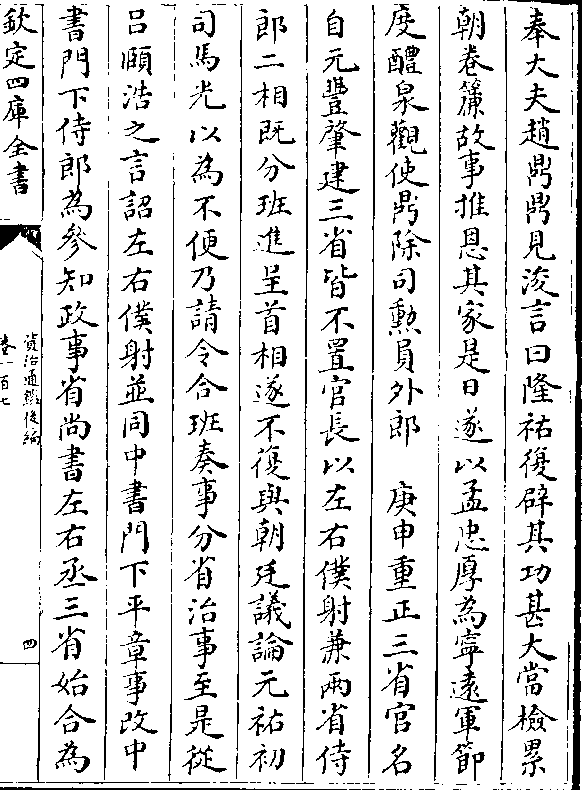 奉大夫趙鼎鼎見浚言曰隆祐復辟其功甚大當檢累
朝卷簾故事推恩其家是日遂以孟忠厚為寧遠軍節
度醴泉觀使鼎除司勲員外郎　庚申重正三省官名
自元豐肇建三省皆不置官長以左右僕射兼兩省侍
郎二相既分班進呈首相遂不復與朝廷議論元祐初
司馬光以為不便乃請令合班奏事分省治事至是從
吕頤浩之言詔左右僕射並同中書門下平章事改中
書門下侍郎為參知政事省尚書左右丞三省始合為
欽定四庫全書
資治通鑑後編
卷一百七
四